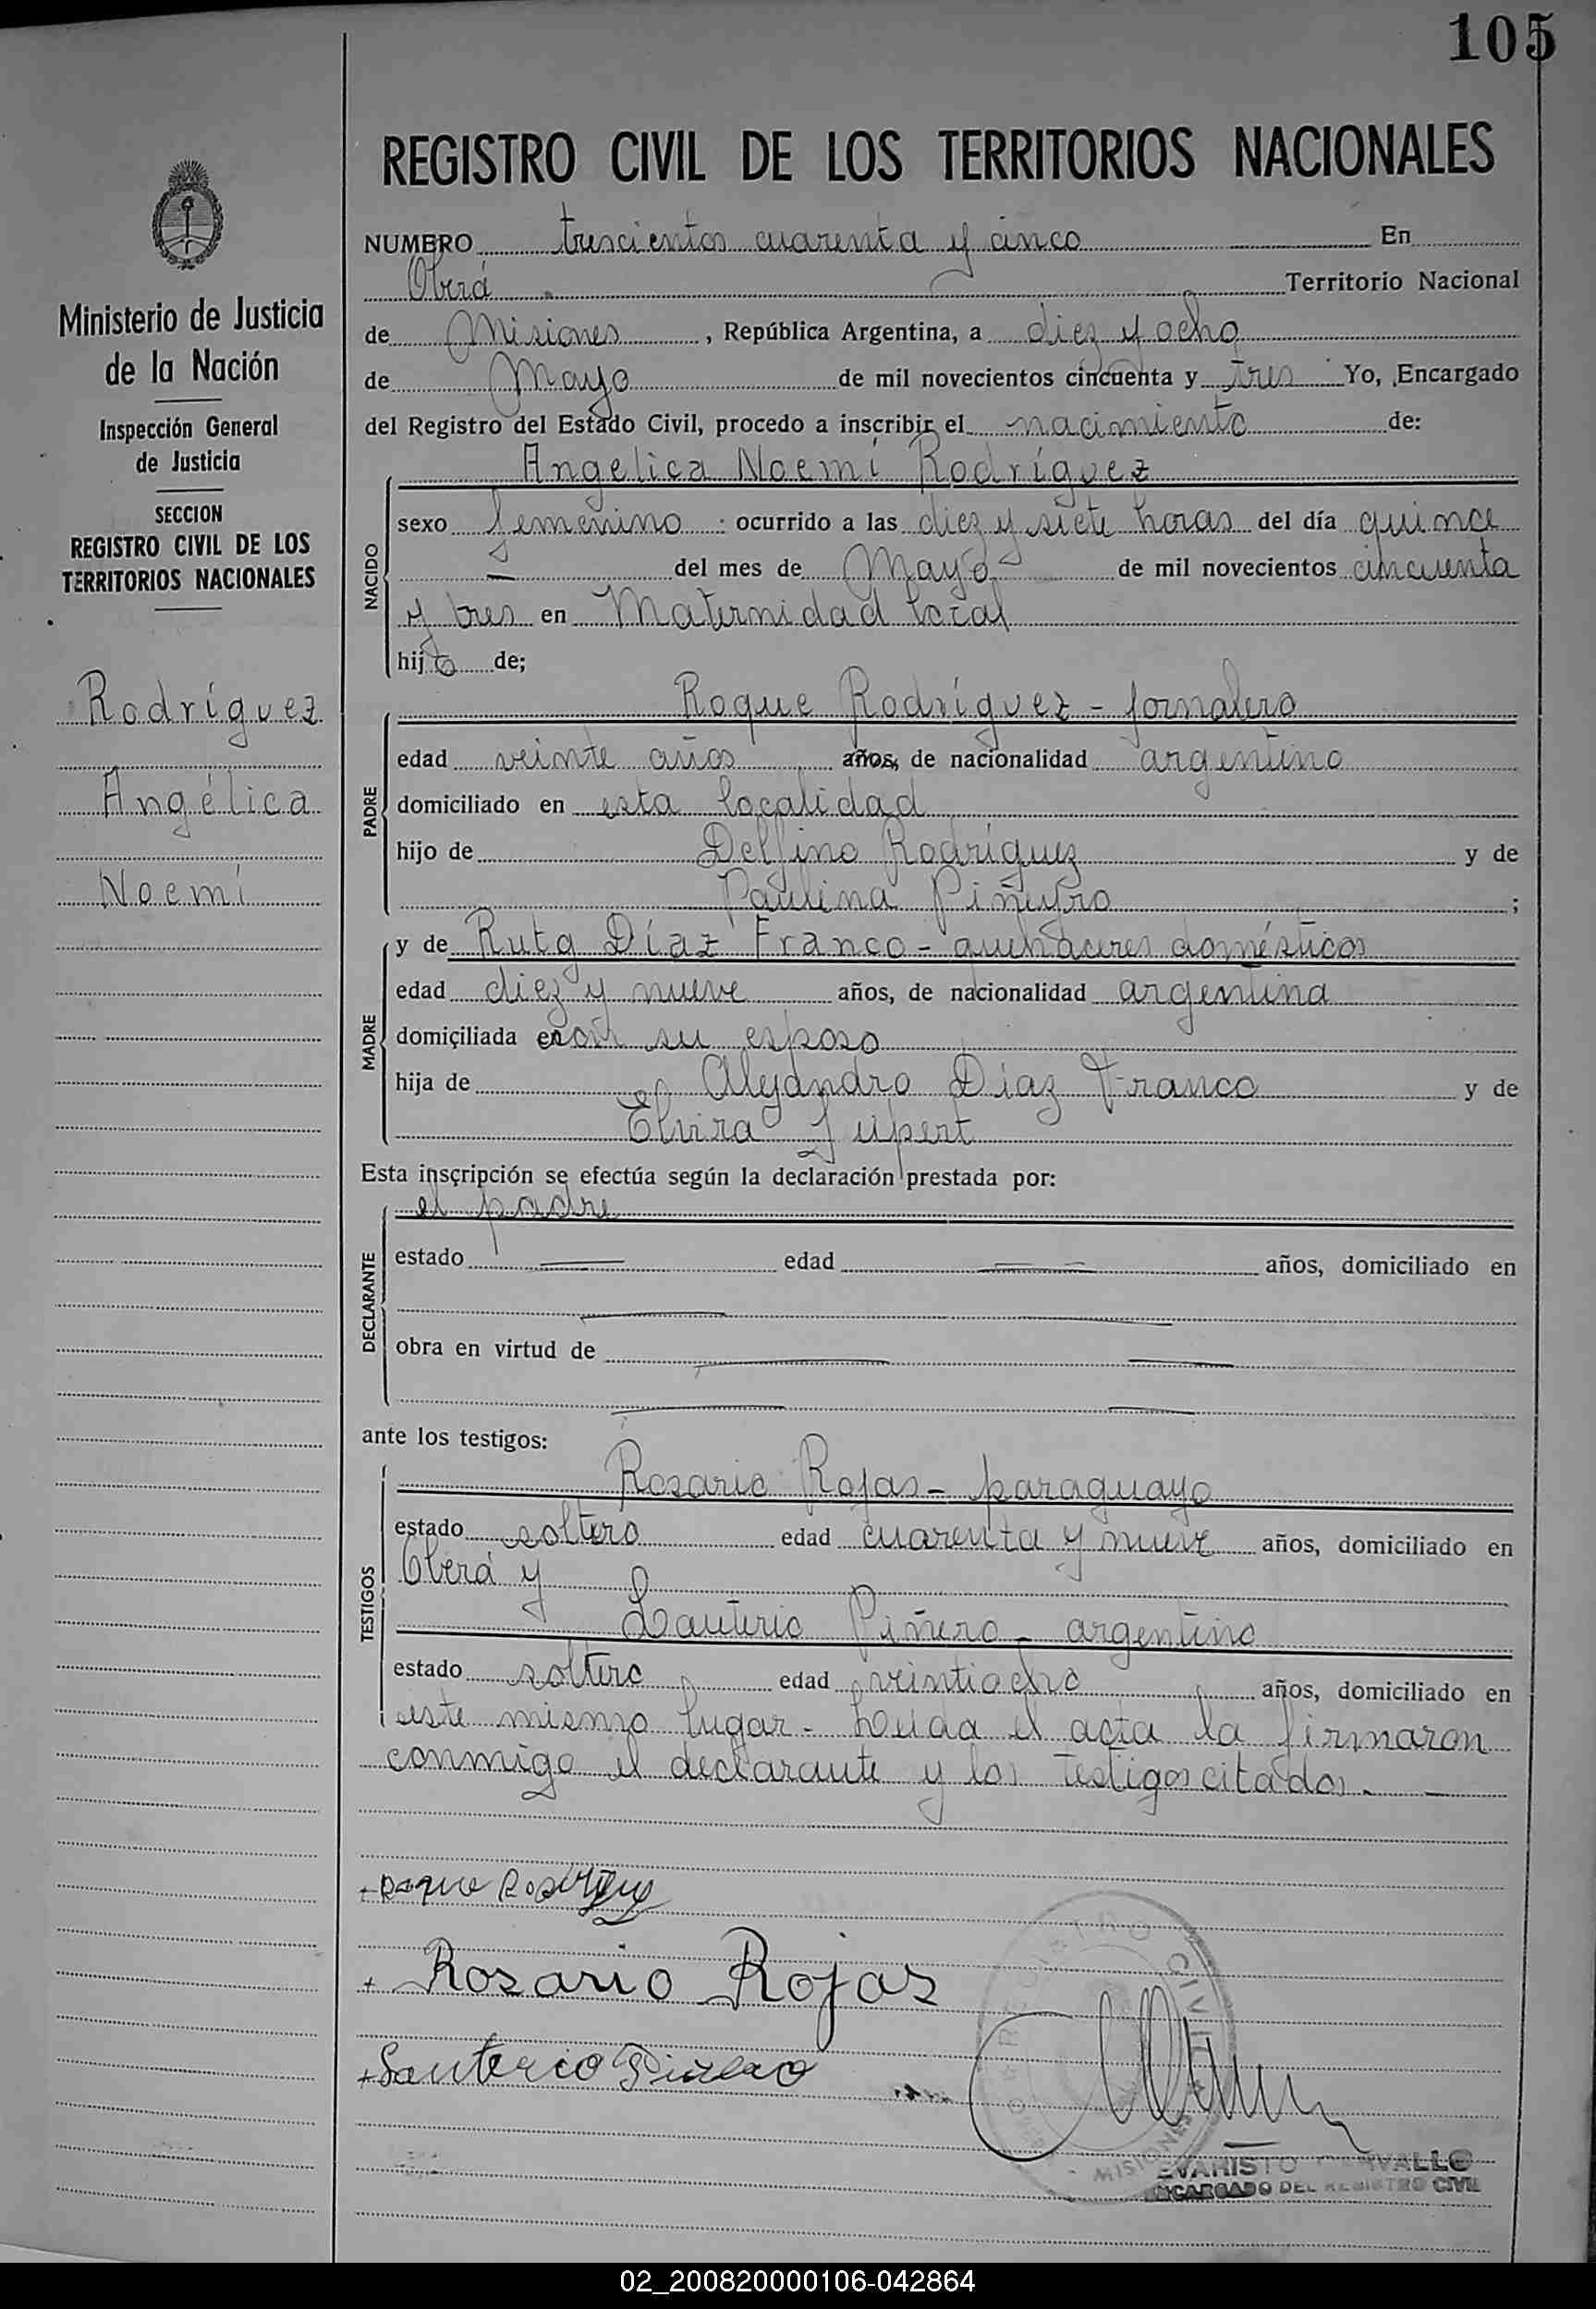 105
REGISTRO CIVIL DE LOS TERRITORIOS NACIONALES
NUMERO trescientos cuarenta y cinco En
Oberá Territorio Nacional
de Misiones, República Argentina, a diez y ocho
de Mayo de mil novecientos cincuenta y tres Yo, Encargado
del Registro del Estado Civil, procedo a inscribir el nacimiento de:
Ministerio de Justicia
de la Nación
Inspección General
de Justicia
SECCION
REGISTRO CIVIL DE LOS
TERRITORIOS NACIONALES
Rodríguez
Angélica
Noemí
NACIDO
Angelica Noemí Rodríguez
sexo femenino : ocurrido a las diez y siete horas del día quince
— del mes de Mayo de mil novecientos cincuenta
y tres en Maternidad local
hij de;
PADRE
Roque Rodríguez - jornalero
edad veinte años años, de nacionalidad argentino
domiciliado en esta localidad
hijo de Delfino Rodríguez y de
Paulina Piñeyro ;
MADRE
y de Díaz Franco - quehaceres domésticos
edad diez y nueve años, de nacionalidad argentina
domiciliada en con su esposo
hija de Alejandro Díaz Franco y de
Elvira
Esta inscripción se efectúa según la declaración prestada por:
DECLARANTE
el padre
estado — edad — años, domiciliado en
obra en virtud de —
ante los testigos:
TESTIGOS
Rosario Rojas - paraguayo
estado soltero edad cuarenta y nueve años, domiciliado en
Oberá y
Lauterio Piñero - argentino
estado soltero edad veintiocho años, domiciliado en
este mismo lugar - Leída el acta la firmaron
conmigo el declarante y los testigos citados. —
+ Roque Rodriguez
+ Rosario Rojas
+ Lauterio Piñero
REGISTRO CIVIL
MISIONES
EVARISTO
ENCARGADO DEL REGISTRO CIVIL
02_200820000106-042864